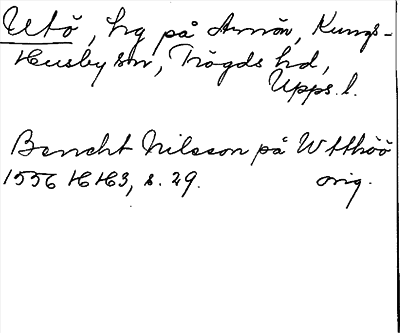 Utö, hg på Arnön, Kungs-
Husby sn, Trögds hd,
Upps. l.
Bencht Nilsson på Wtthöö
1556 HH3, s. 29. orig.